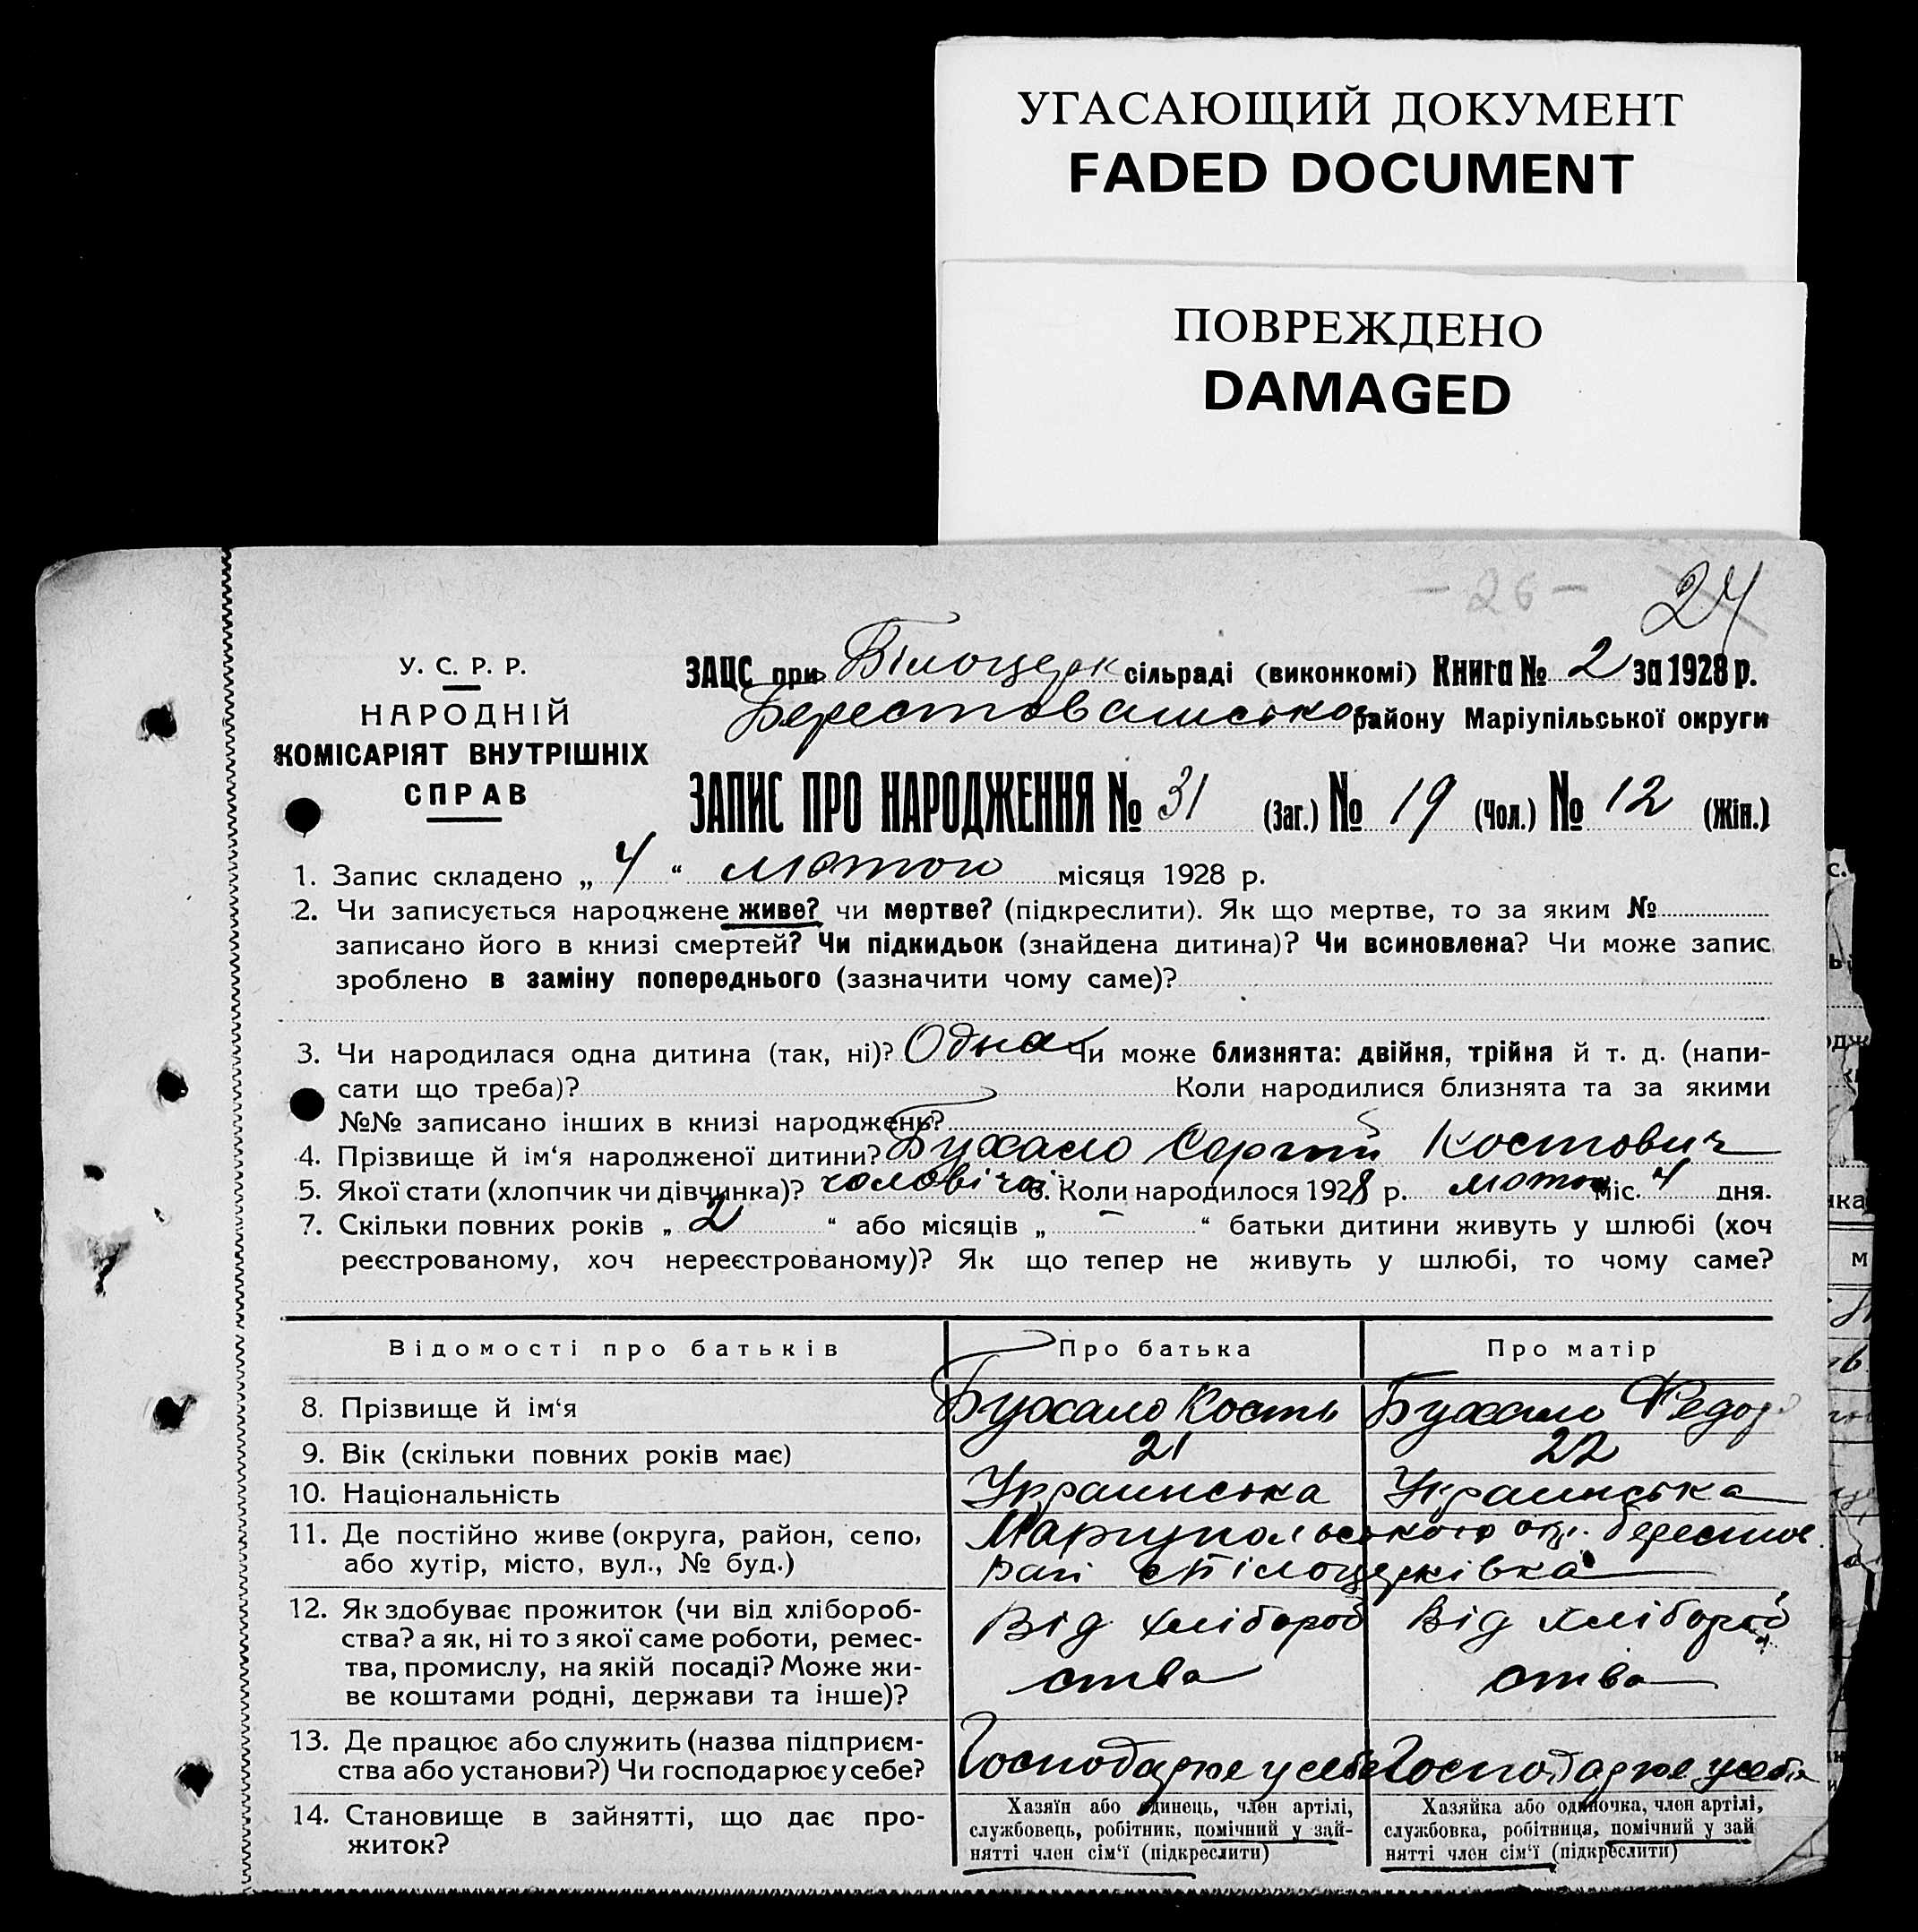 УГАСАЮЩИЙ ДОКУМЕНТ
FADED DOCUMENT
ПОВРЕЖДЕНО
DAMAGED
- 26 -
24
У. С. Р. Р.
НАРОДНІЙ
КОМІСАРІЯТ ВНУТРІШНІХ
СПРАВ
ЗАЦС при Білоцерк сільраді (виконкомі) Книга № 2 за 1928 р.
району Маріупільської округи
ЗАПИС ПРО НАРОДЖЕННЯ № 31 (Заг.) № 19 (Чол.) № 12 (Жін.)
1. Запис складено „ 4 “ лютого місяця 1928 р.
2. Чи записується народжене живе? чи мертве? (підкреслити). Як що мертве, то за яким №
записано його в книзі смертей? Чи підкидьок (знайдена дитина)? Чи всиновлена? Чи може запис
зроблено в заміну попереднього (зазначити чому саме)?
3. Чи народилася одна дитина (так, ні)? Одна Чи може близнята: двійня, трійня й т. д. (напи-
сати що треба)? Коли народилися близнята та за якими
№№ записано інших в книзі народжень?
4. Прізвище й ім‘я народженої дитини? Бухало Сергій Костович
5. Якої стати (хлопчик чи дівчинка)? чоловічої 6. Коли народилося 1928 р. лютого міс. 4 дня.
7. Скільки повних років „ 2 “ або місяців „ — “ батьки дитини живуть у шлюбі (хоч
реєстрованому, хоч нереєстрованому)? Як що тепер не живуть у шлюбі, то чому саме?
Відомості про батьків Про батька Про матір
8. Прізвище й ім‘я Бухало Кость Бухало Федор
9. Вік (скільки повних років має) 21 22
10. Національність Украинська Украинська
11. Де постійно живе (округа, район, село, Маріупольського окр. Берестов.
або хутір, місто, вул., № буд.) Білоцерківка
12. Як здобуває прожиток (чи від хлібороб- Від хлібороб Від хлібороб
ства? а як, ні то з якої саме роботи, ремес-
тва, промислу, на якій посаді? Може жи- ства ства
ве коштами родні, держави та інше)?
13. Де працює або служить (назва підприєм-
ства або установи?) Чи господарює у себе? Господарює у себе Господарює у себе
14. Становище в зайнятті, що дає про-
житок?
Хазяїн або одинець, член артілі,
службовець, робітник, помічний у зай-
нятті член сім‘ї (підкреслити)
Хазяйка або одиночка, член артілі,
службовка, робітниця, помічний у зай
нятті член сім‘ї (підкреслити)